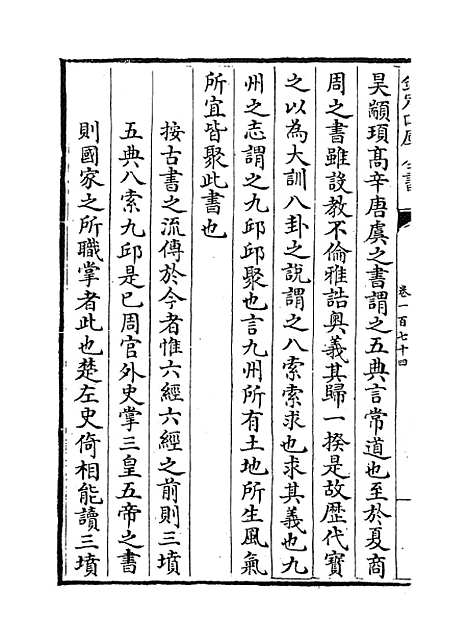 欽定四庫全書
卷一百七十四
昊顓頊髙辛唐虞之書謂之五典言常道也至於夏商
周之書雖設教不倫雅誥奥義其歸一揆是故歴代寳
之以為大訓八卦之說謂之八索索求也求其義也九
州之志謂之九邱邱聚也言九州所有土地所生風氣
所宜皆聚此書也
按古書之流傳於今者惟六經六經之前則三墳
五典八索九邱是已周官外史掌三皇五帝之書
則國家之所職掌者此也楚左史倚相能讀三墳